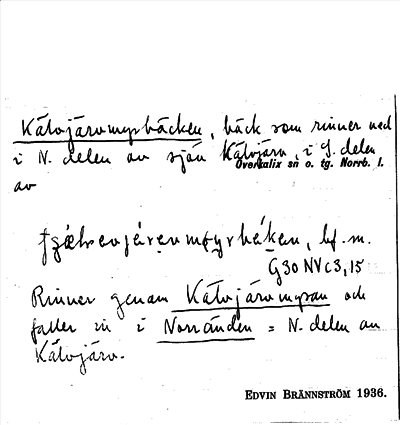 Kälvjärvmyrbäcken, bäck som rinner ned
i N. delen av sjön Kälvjärv, i S. delen
Överkalix sn o. tg. Norrb. l.
av
bf. m.
G30 NV c3,15
Rinner genom Kälvjärvmyran och
faller in i Norränden = N. delen av
Kälvjärv.
EDVIN BRÄNNSTRÖM 1936.